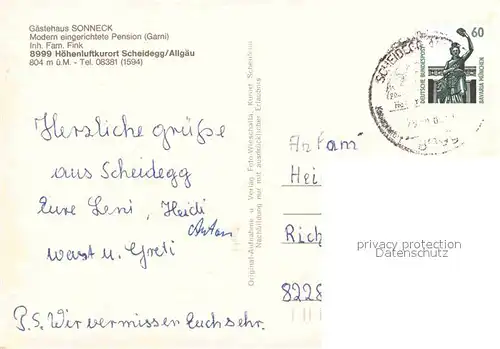 Gästehaus SONNECK
Modern eingerichtete Pension (Garni)
Inh. Fam. Fink
8999 Höhenluftkurort Scheidegg/Allgäu
804 m ü.M. - Tel. 08381 (1594)
Herzliche grüße
aus Scheidegg
Eure Leni, Heidi
Anton
wast u. Greti
P.S. Wir vermissen Euch sehr.
Original-Aufnahme u. Verlag Foto-Wieschalla, Kurort Scheidegg
Nachbildung nur mit ausdrücklicher Erlaubnis
SCHEIDEGG
60
DEUTSCHE BUNDESPOST
BAVARIA MÜNCHEN
An Fami
Hei
Rich
8228
privacy protection
Datenschutz